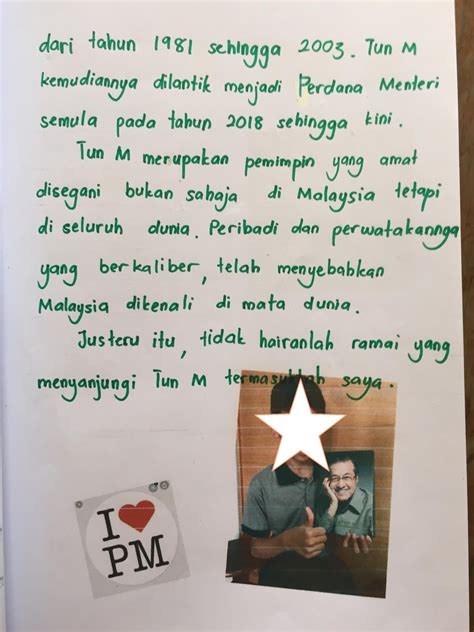 dari tahun 1981 sehingga 2003. Tun M
kemudiannya dilantik menjadi Perdana Menteri
semula pada tahun 2018 sehingga kini.
Tun M merupakan pemimpin yang amat
disegani bukan sahaja di Malaysia tetapi
di seluruh dunia. Peribadi dan perwatakannya
yang berkaliber, telah menyebabkan
Malaysia dikenali di mata dunia.
Justeru itu, tidak hairanlah ramai yang
menyanjungi Tun M termasuklah saya.
I ❤
PM